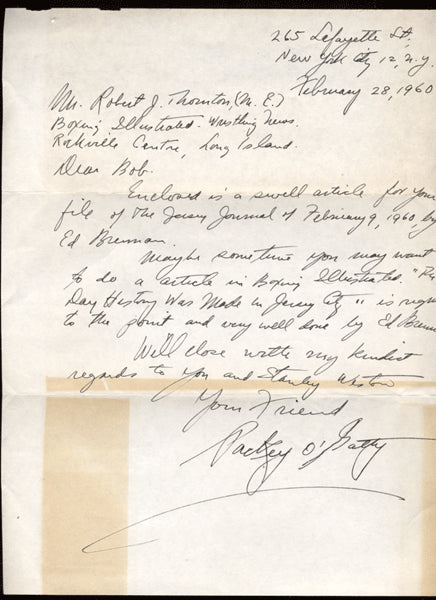 265 Lafayette St,
New York City 12, N.Y.
February 28, 1960
Mr. Robert J. Thornton, (M.E.)
Boxing Illustrated - Wrestling News.
Rockville Centre, Long Island.
Dear Bob.
Enclosed is a swell article for your
file of the Jersey Journal of February 9, 1960, by
Ed Brennan.
Maybe sometime you may want
to do a article in Boxing Illustrated. "
Day History Was Made in Jersey City" is
to the point and very well done by Ed
Will close with my kindest
regards to you and Stanley Weston
Your Friend
Packey O'Gatty